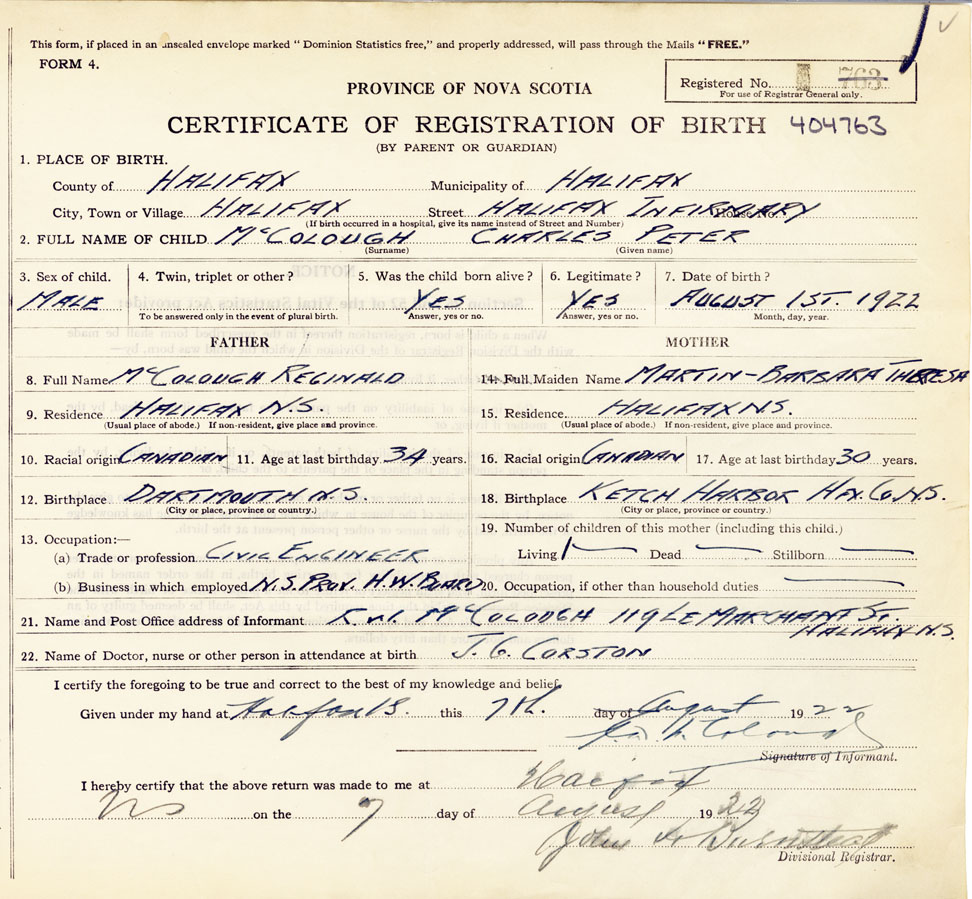 This form, if placed in an unsealed envelope marked "Dominion Statistics free," and properly addressed, will pass through the Mails "FREE."
FORM 4.
Registered No. 763
For use of Registrar General only.
PROVINCE OF NOVA SCOTIA
CERTIFICATE OF REGISTRATION OF BIRTH 404763
(BY PARENT OR GUARDIAN)
1. PLACE OF BIRTH.
County of HALIFAX Municipality of HALIFAX
City, Town or Village HALIFAX Street HALIFAX INFIRMARY House No.
(If birth occurred in a hospital, give its name instead of Street and Number)
2. FULL NAME OF CHILD McCOLOUGH CHARLES PETER
(Surname) (Given name)
3. Sex of child. 4. Twin, triplet or other? 5. Was the child born alive? 6. Legitimate? 7. Date of birth?
MALE YES YES AUGUST 1ST. 1922
To be answered only in the event of plural birth. Answer, yes or no. Answer, yes or no. Month, day, year.
FATHER MOTHER
8. Full Name McCOLOUGH REGINALD 14. Full Maiden Name MARTIN-BARBARA THERESA
9. Residence HALIFAX N.S. 15. Residence. HALIFAX N.S.
(Usual place of abode.) If non-resident, give place and province. (Usual place of abode.) If non-resident, give place and province.
10. Racial origin CANADIAN 11. Age at last birthday 34 years. 16. Racial origin CANADIAN 17. Age at last birthday 30 years.
12. Birthplace DARTMOUTH N.S. 18. Birthplace KETCH HARBOR HFX. CO. N.S.
(City or place, province or country.) (City or place, province or country.)
19. Number of children of this mother (including this child.)
13. Occupation:—
(a) Trade or profession CIVIL ENGINEER Living 1 Dead — Stillborn —
(b) Business in which employed N.S. PROV. H.W. BOARD 20. Occupation, if other than household duties —
21. Name and Post Office address of Informant McCOLOUGH 119 LE MARCHANT ST.
HALIFAX N.S.
22. Name of Doctor, nurse or other person in attendance at birth J. G. CORSTON
I certify the foregoing to be true and correct to the best of my knowledge and belief.
Given under my hand at this 7th. day of August 1922
Signature of Informant.
I hereby certify that the above return was made to me at Halifax
NS on the 7 day of August 1922
John
Divisional Registrar.